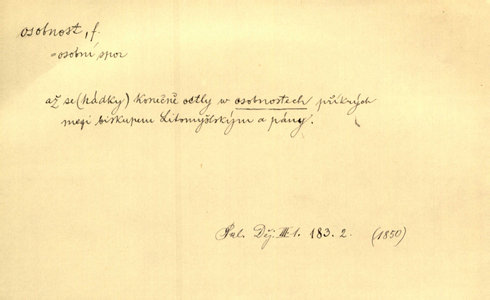 osobnost, f.
=osobní spor
až se (hádky) konečně octly w osobnostech příkrých
mezi biskupem Litomyšlským a pány.
Pal. Děj. III 1. 183. 2. (1850)